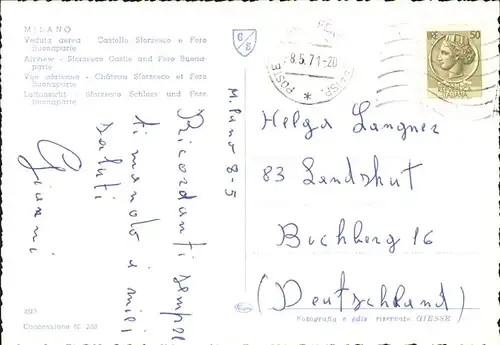 MILANO
Veduta aerea - Castello Sforzesco e Foro
Buonaparte
Airview - Sforzesco Castle and Foro Buona-
parte
Vue aérienne - Château Sforzesco et Foro
Buonaparte
Luftansicht - Sforzesco Schloss und Foro
Buonaparte
G
S
8.5.71-20
POSTE
50
REPUBBLICA
ITALIANA
8-5
Ricordanti sempre
ti mando i miei
saluti
Gianni
Helga Langner
83 Landshut
Buchberg 16
(Deutschland)
Concessione N. 288
Fotografia e ediz. riservate GIESSE